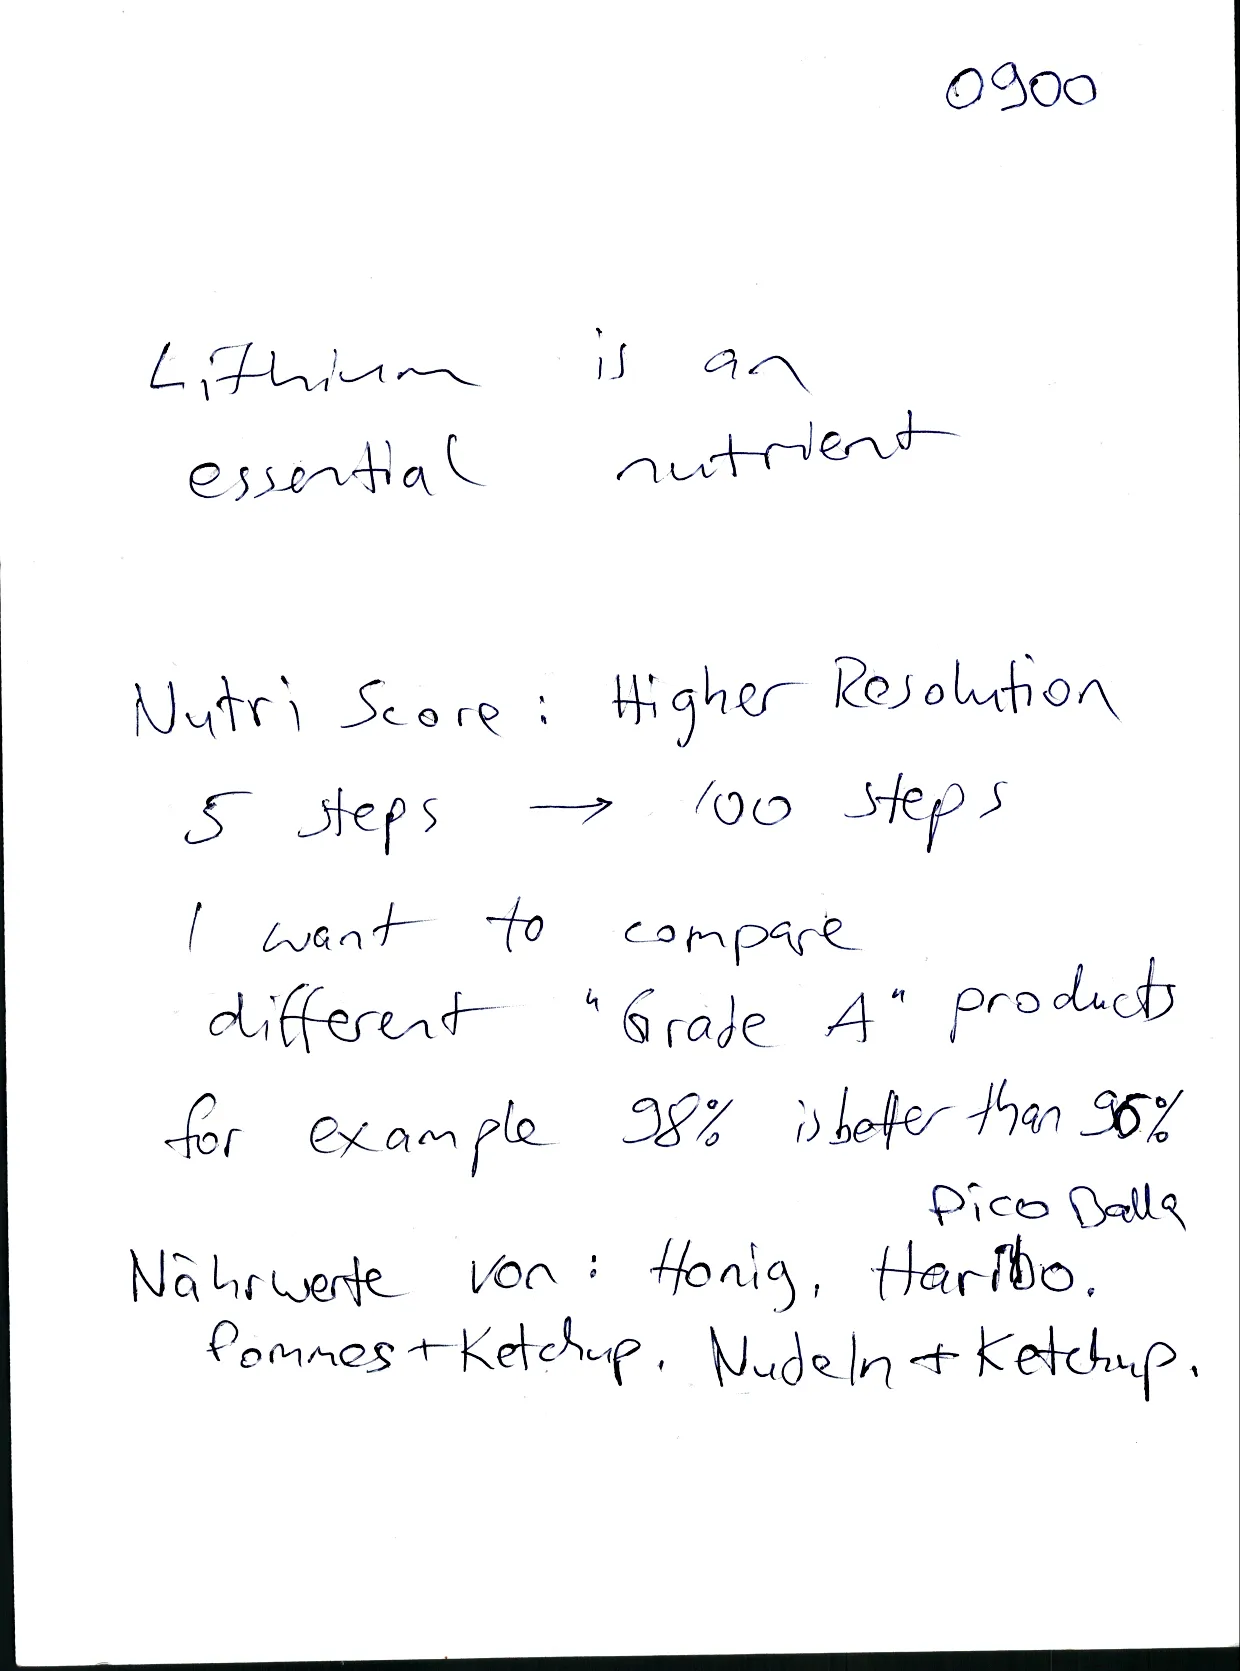 0900
Lithium is an
essential nutrient
Nutri Score: Higher Resolution
5 steps → 100 steps
I want to compare
different "Grade A" products
for example 98% is better than 95%
Pico Balla
Nährwerte von: Honig, Haribo.
Pommes + Ketchup. Nudeln + Ketchup.